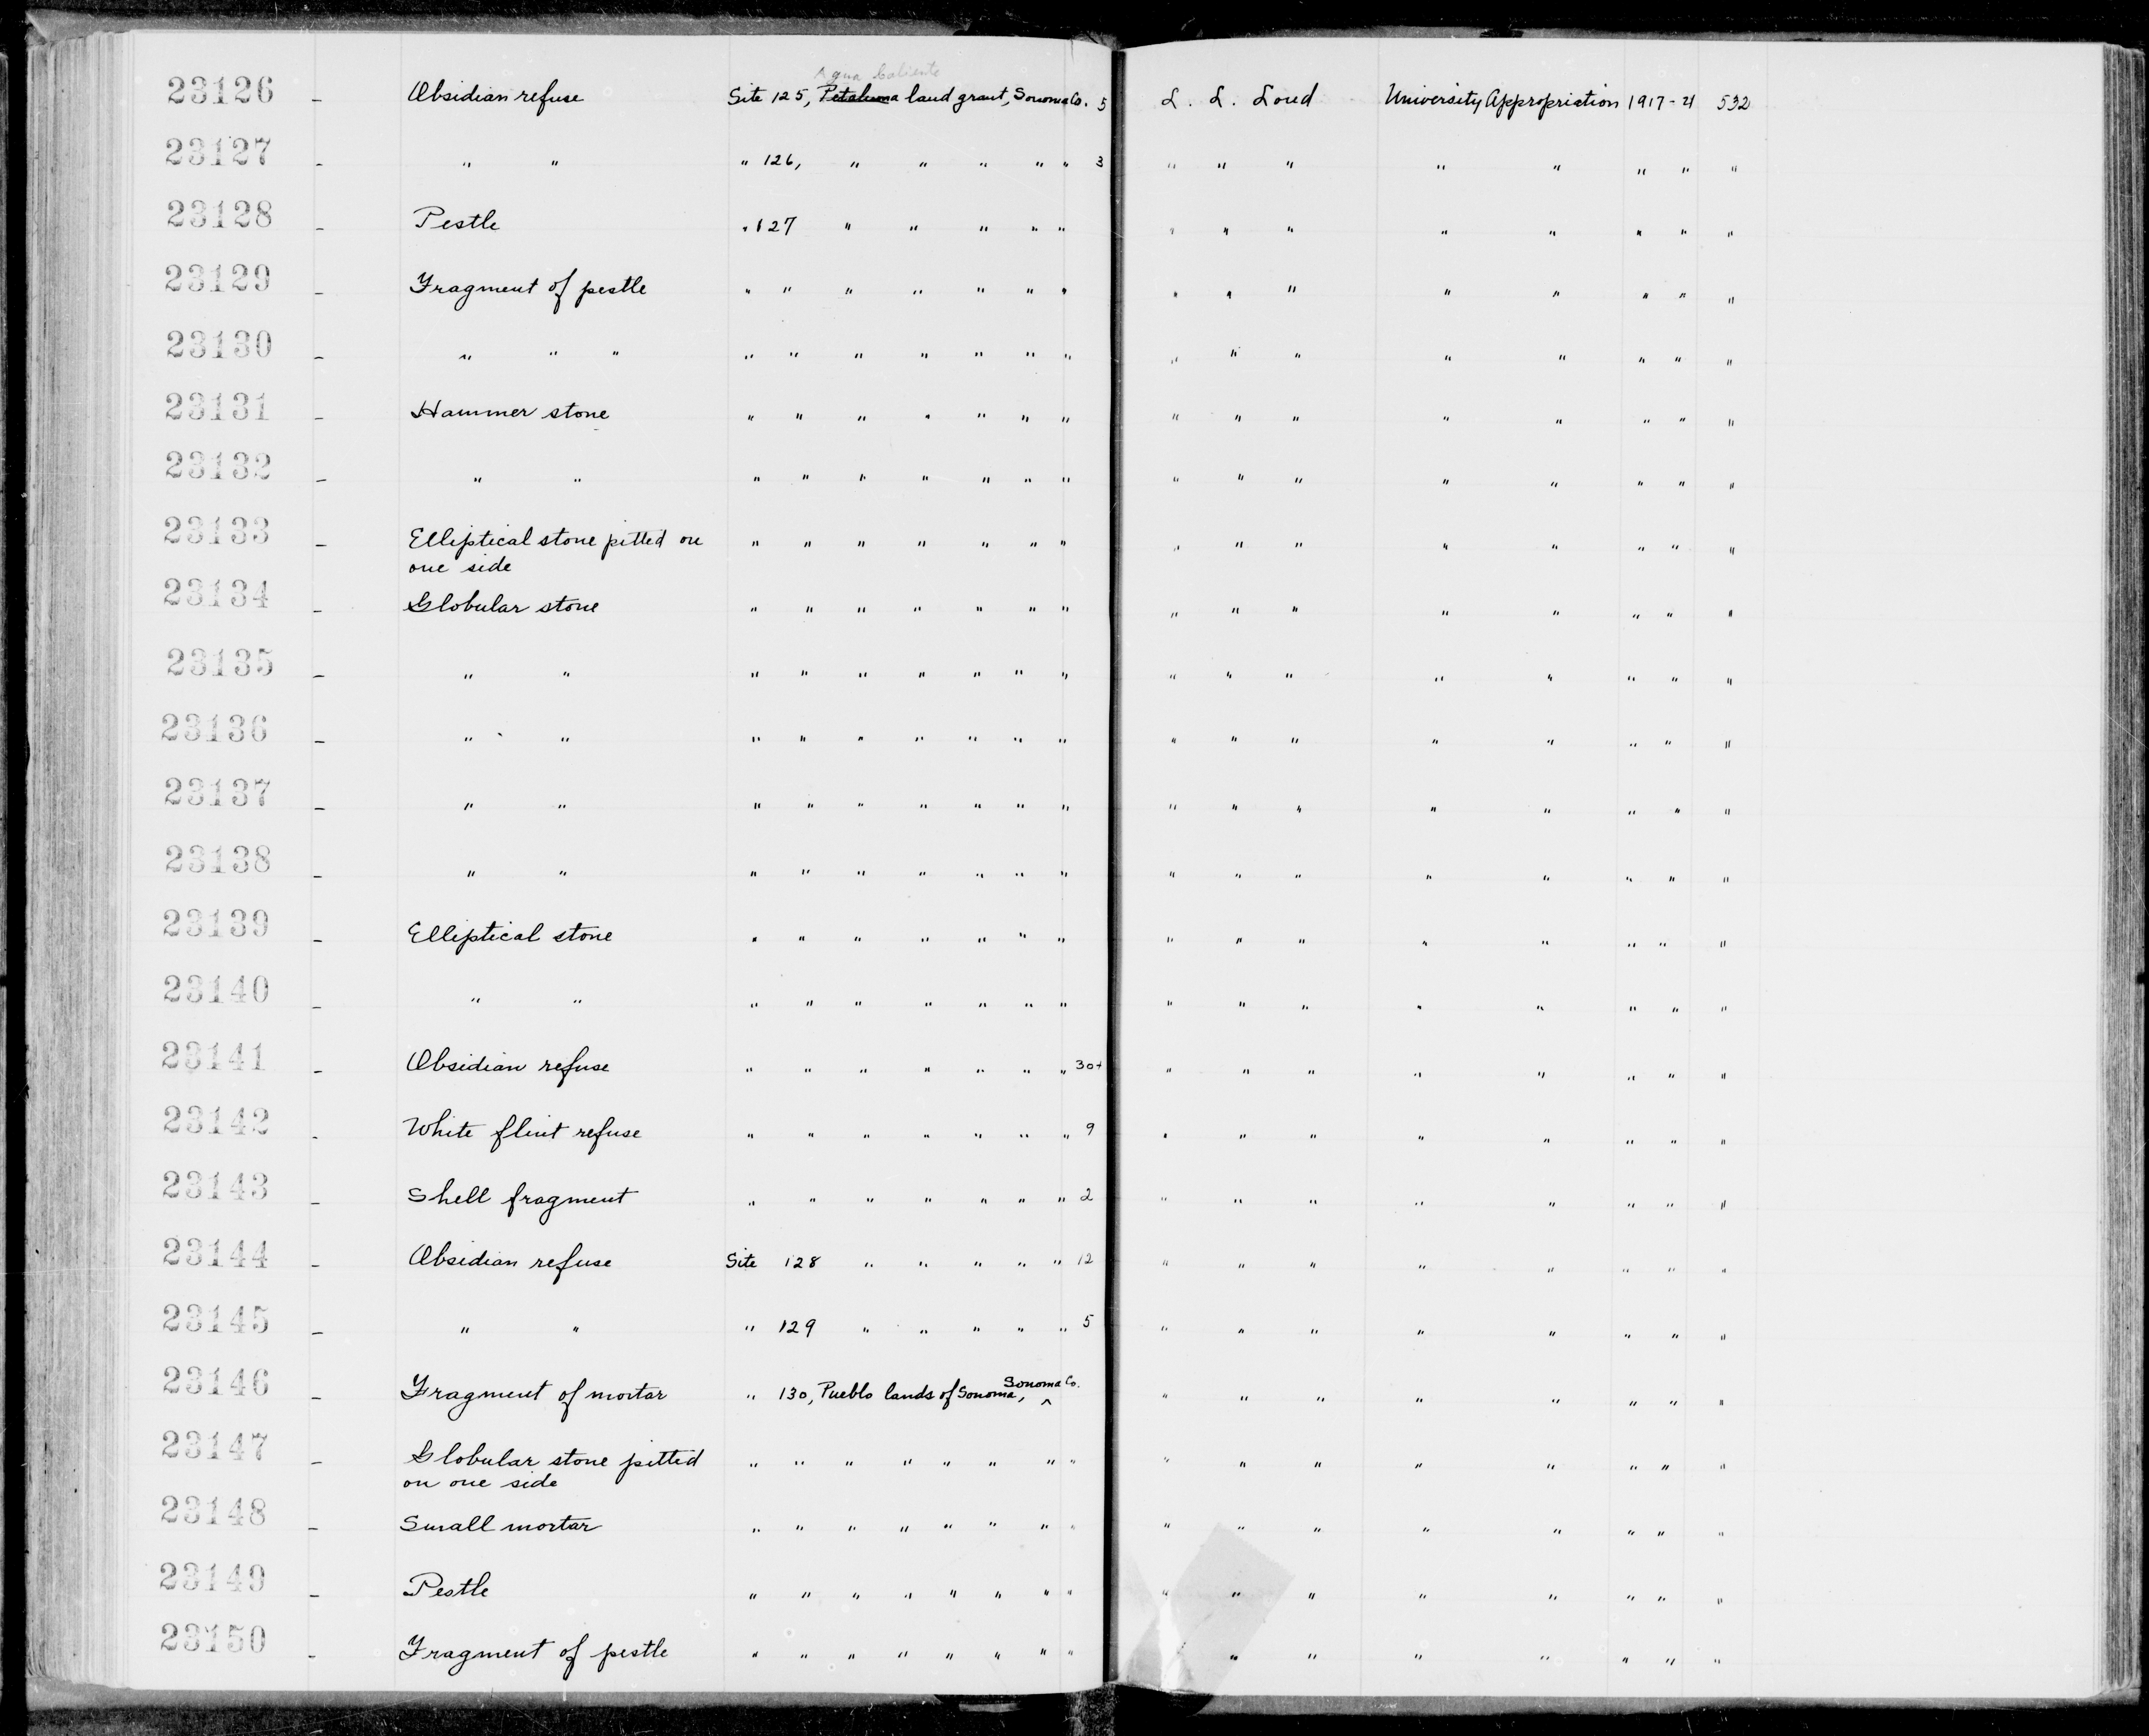 Agua Caliente
23126 - Obsidian refuse Site 125, Petaluma land grant, Sonoma Co. 5 L. L. Loud University Appropriation 1917-21 532
23127 - " " " 126, " " " " " 3 " " " " " " " "
23128 - Pestle " 127 " " " " " " " " " " " " "
23129 - Fragment of pestle " " " " " " " " " " " " " " "
23130 - " " " " " " " " " " " " " " " " " "
23131 - Hammer stone " " " " " " " " " " " " " " "
23132 - " " " " " " " " " " " " " " " " "
23133 - Elliptical stone pitted on " " " " " " " " " " " " " " "
one side
23134 - Globular stone " " " " " " " " " " " " " " "
23135 - " " " " " " " " " " " " " " " " "
23136 - " " " " " " " " " " " " " " " " "
23137 - " " " " " " " " " " " " " " " " "
23138 - " " " " " " " " " " " " " " " " "
23139 - Elliptical stone " " " " " " " " " " " " " " "
23140 - " " " " " " " " " " " " " " " " "
23141 - Obsidian refuse " " " " " " " 30+ " " " " " " " "
23142 - White flint refuse " " " " " " " 9 " " " " " " " "
23143 - Shell fragment " " " " " " " 2 " " " " " " " "
23144 - Obsidian refuse Site 128 " " " " " 12 " " " " " " " "
23145 - " " " 129 " " " " " 5 " " " " " " " "
23146 - Fragment of mortar " 130, Pueblo lands of Sonoma, ^ Sonoma Co. " " " " " " " "
23147 - Globular stone pitted " " " " " " " " " " " " " " " "
on one side
23148 - Small mortar " " " " " " " " " " " " " " " "
23149 - Pestle " " " " " " " " " " " " " " " "
23150 - Fragment of pestle " " " " " " " " " " " " " " "